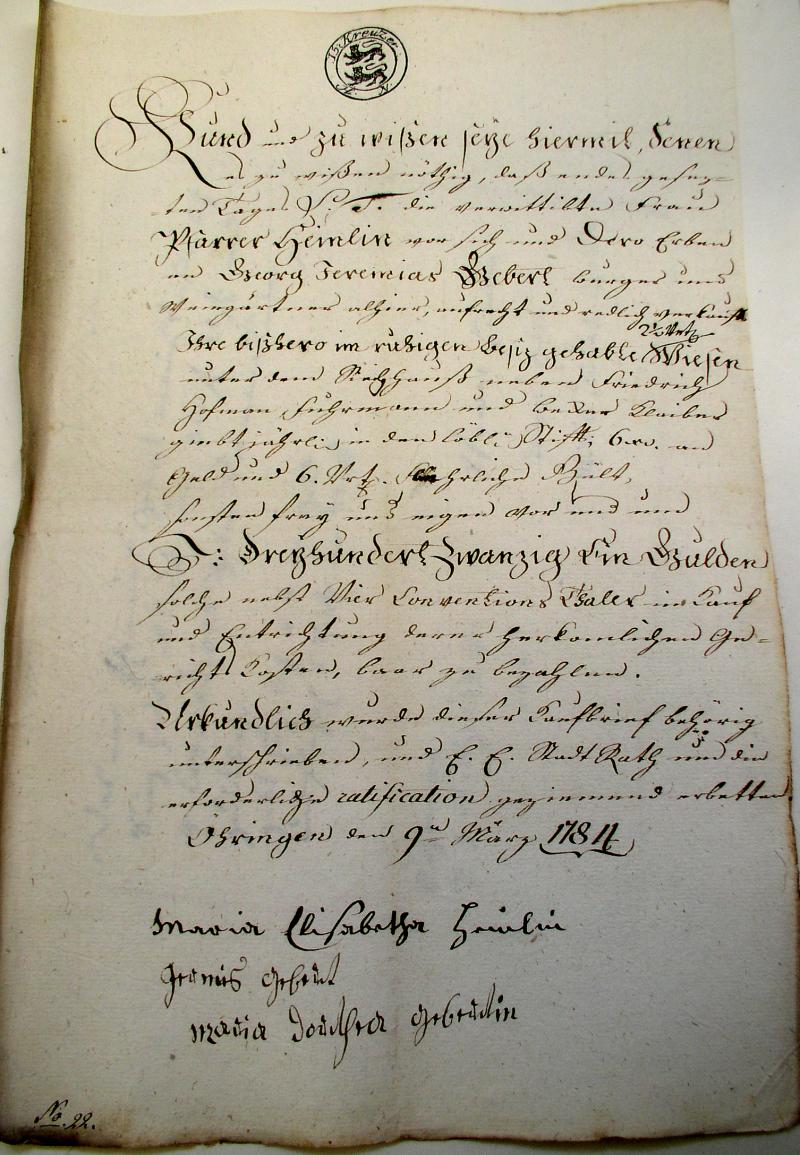 15. Kreuzer
Kund und zu wißen seye hiermit, denen
es zu wißen nöthig, daß endes gesez-
ten Tages S. T. die verwittibte Frau
Pfarrer Heimlin vor sich und Dero Erben
an Georg Jeremias Gebert burger und
Weingärtner alhier, aufrecht und redlich verkauft
2½ Vrtl
Ihre bißhero im ruhigen besiz gehabte Wiesen
unter dem Siechhauß neben Friedrich
Hofman Fuhrmann und becker Klaiber
giebt jährlich in den löbl. Stifft, 6 xr. an
Geld und 6. Vrtl. jährliche Gült,
sonsten frey und eigen vor und um
T: Dreyhundert Zwanzig Ein Gulden
solche nebst Vier Conventions Thaler in Kauf
und Entrichtung derer herkomlichen Ge-
richts Kosten, baar zu bezahlen.
Urkundlich wurde dieser Kaufbrief behörig
unterschrieben, und E. E. Stadt Rath um die
erforderliche ratification geziemend erbetten.
Öhringen den 9ten März 1784
Maria Elisabetha Heimlin
Jermis Gebert
Maria Dorthea Gebertin
No. 22.